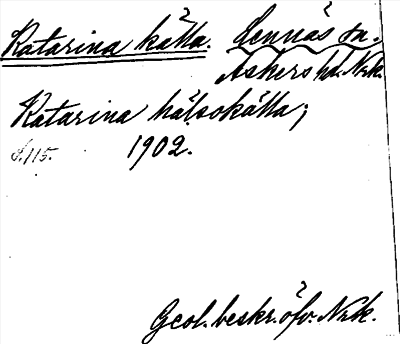 Katarina källa. Lennäs sn.
Askers hd. Nrk.
Katarina hälsokälla;
s. 115. 1902.
Geol. beskr. öfv. Nrk.